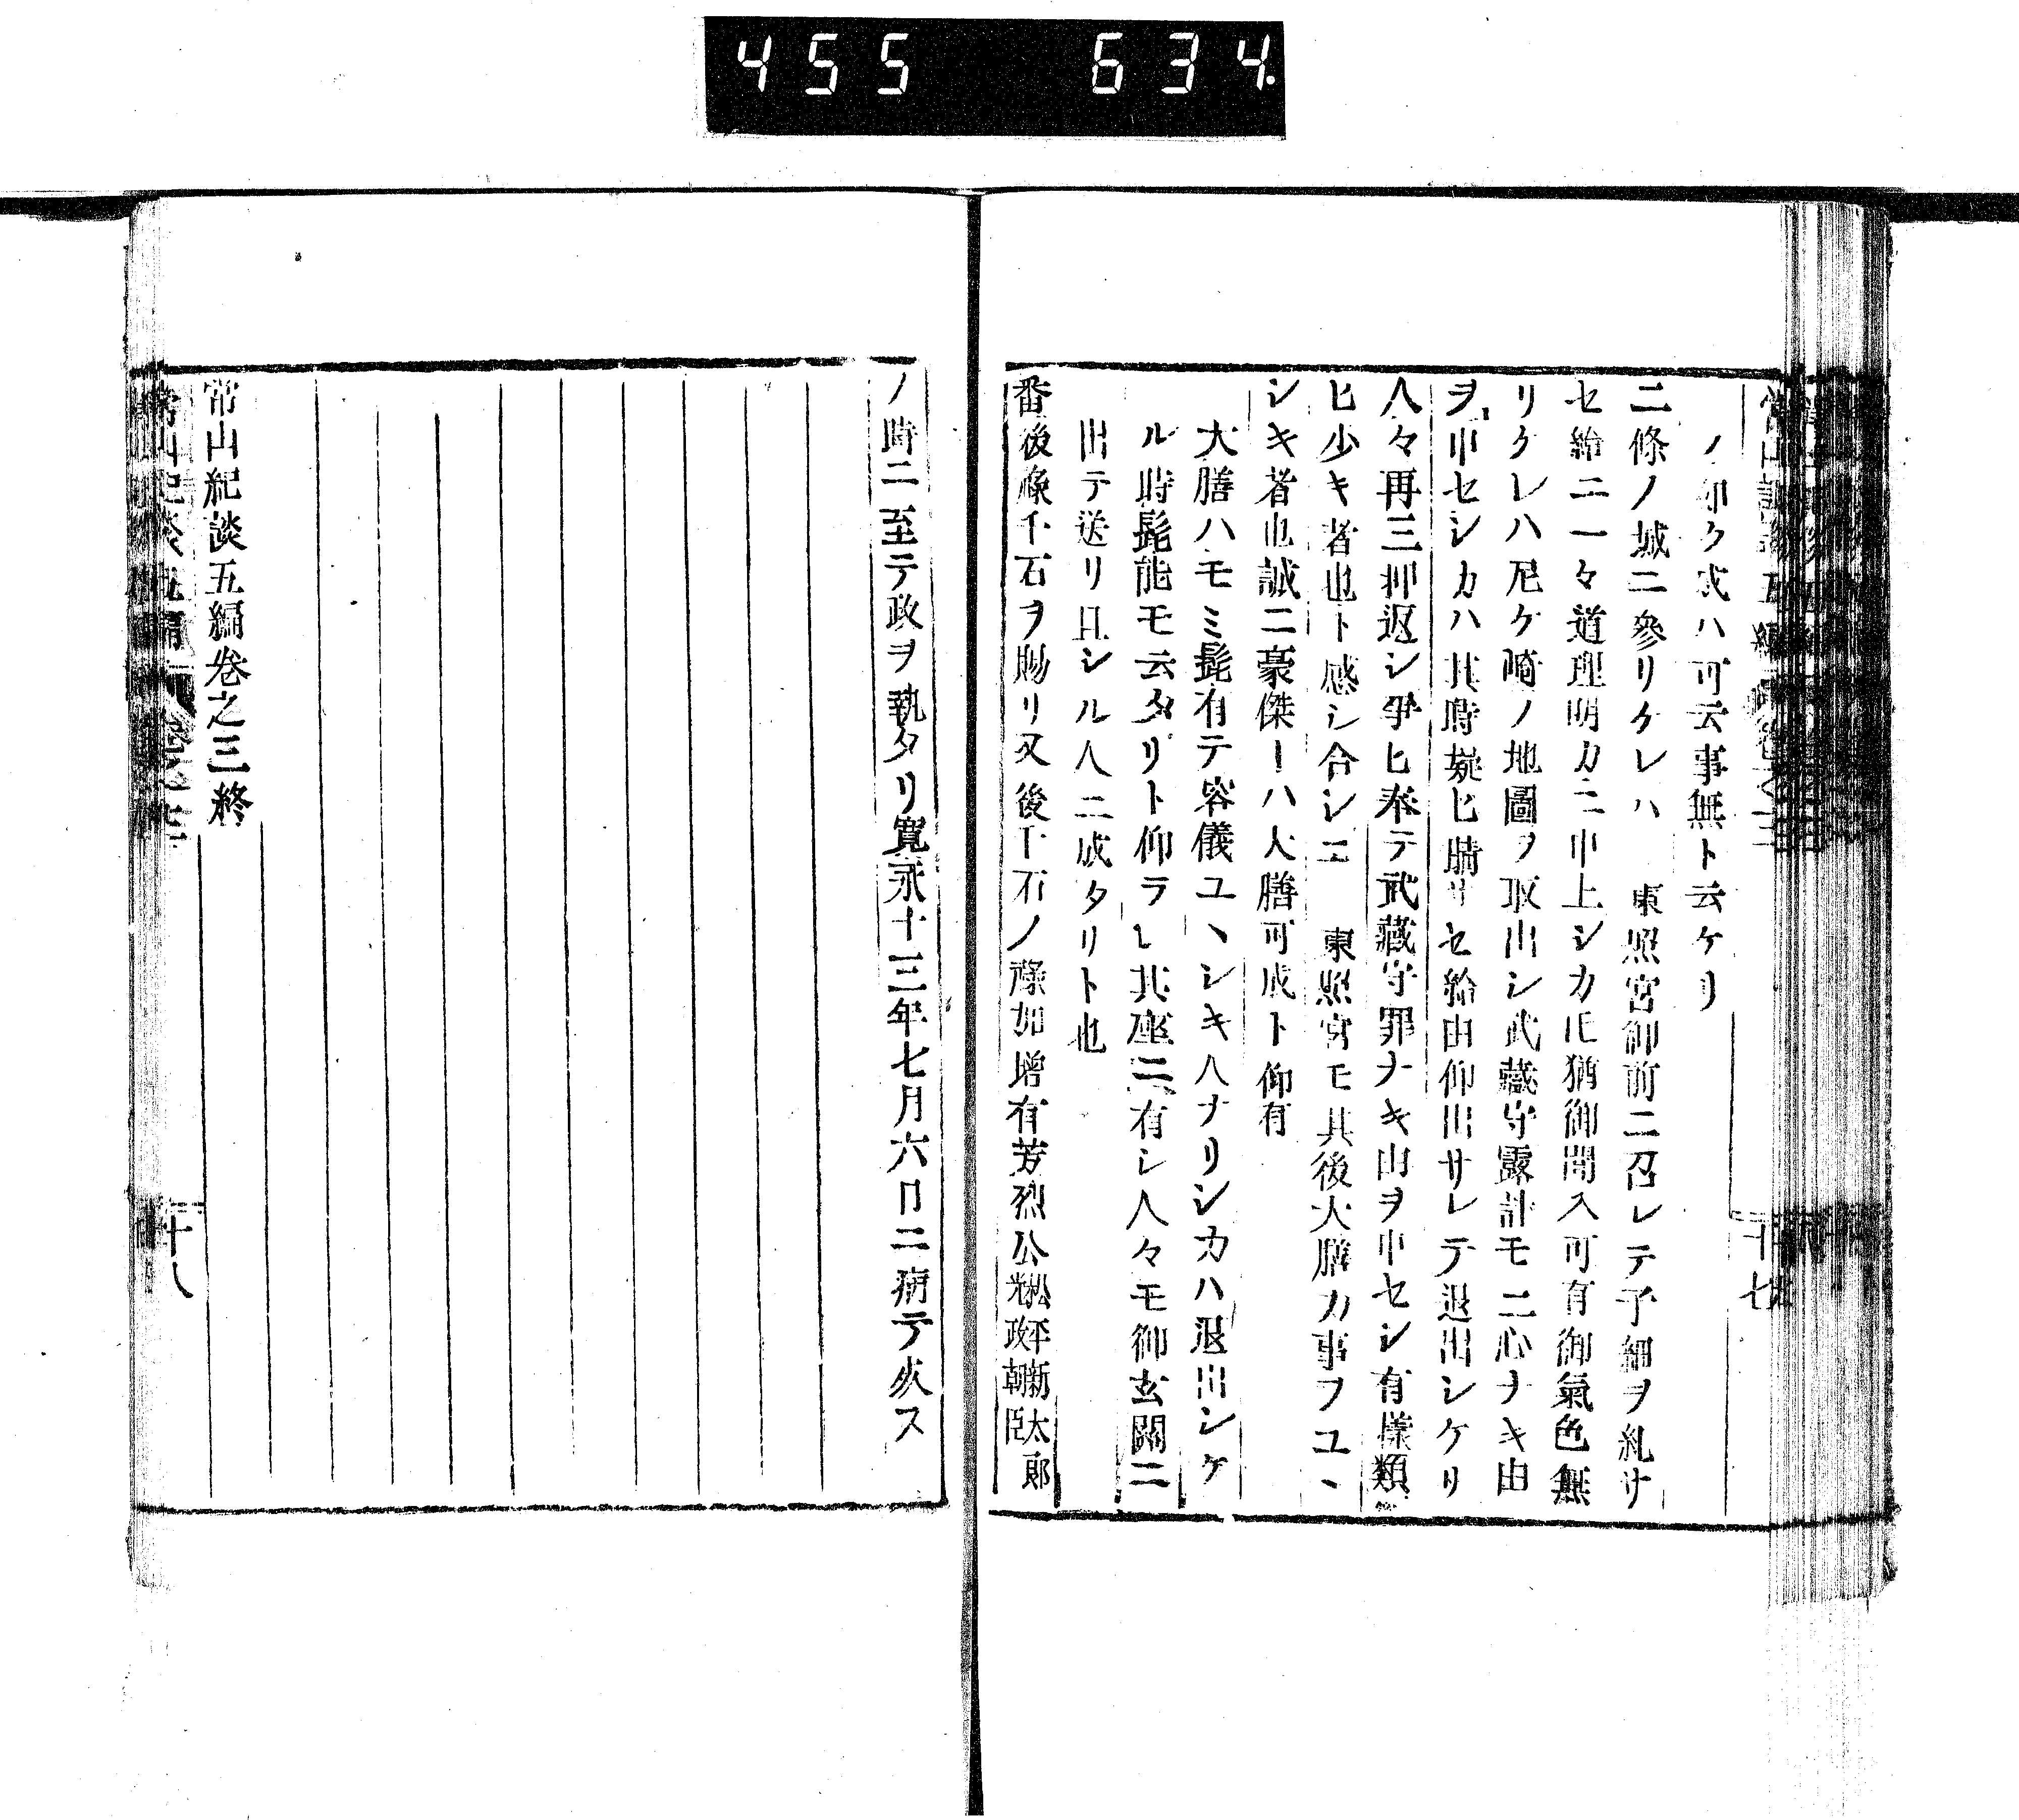 455 634
ノ如ク或ハ可云事無ト云ケリ
二條ノ城ニ參リケレハ 東照宮御前ニ召レテ子細ヲ糺サ
セ給ニ一々道理明カニ申上シカ𪜈猶御聞入可有御氣色無
リケレハ尼ケ崎ノ地圖ヲ取出シ武藏守露計モ二心ナキ由
ヲ申セシカハ其時疑ヒ晴サセ給由仰出サレテ退出シケリ
人々再三押返シ爭ヒ奉テ武藏守罪ナキ由ヲ申セシ有樣類
ヒ少キ者也ト感シ合シニ 東照宮モ其後大膳カ事ヲユヽ
シキ者也誠ニ豪傑ーハ大膳可成ト仰有
大膳ハモミ髭有テ容儀ユヽシキ人ナリシカハ退出シケ
ル時髭能モ云タリト仰ラレ其座ニ有シ人々モ御玄關ニ
出テ送リ且シル人ニ成タリト也
番後祿千石ヲ賜リ又後千石ノ祿加增有芳烈公松平新太郎光政朝臣
ノ時ニ至テ政ヲ執タリ寬永十三年七月六日ニ病テ死ス
常山紀談五編卷之三終
十七
十八